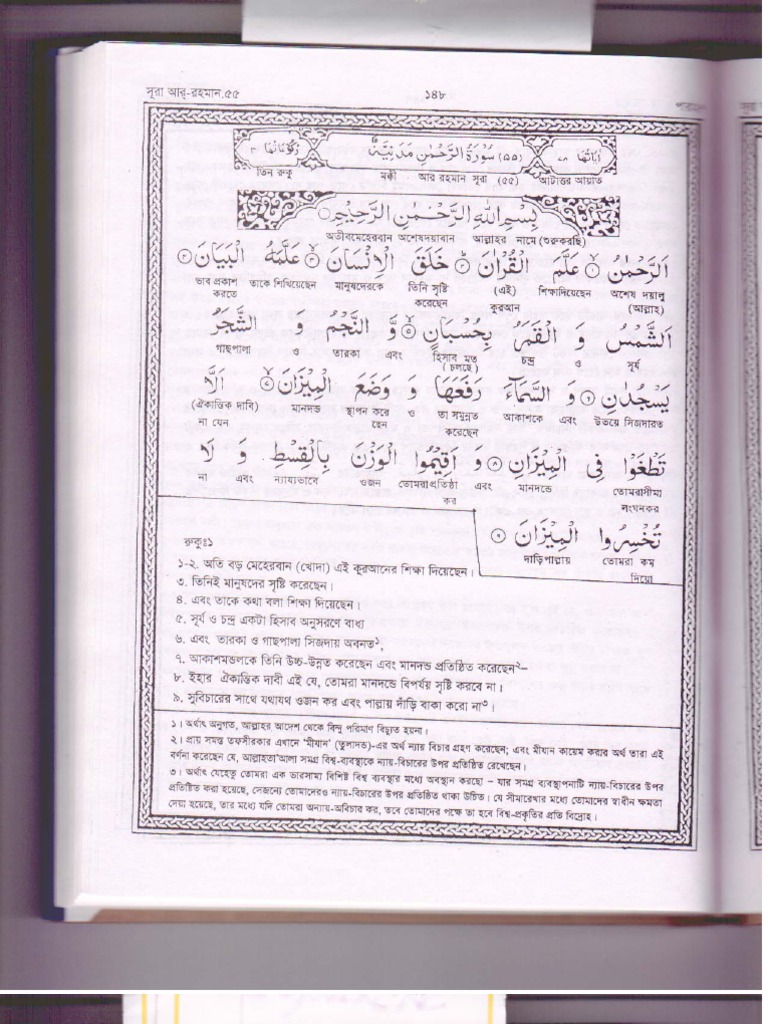 সূরা আর্-রহমান.৫৫
১৪৮
اٰيَاتُهَا ٧٨ (٥٥) سُوْرَةُ الرَّحْمٰنِ مَدَنِيَّةٌ رُكُوْعَاتُهَا ٣
আটাত্তর আয়াত (৫৫) আর রহমান সূরা মক্কী তিন রুকু
بِسْمِ اللّٰهِ الرَّحْمٰنِ الرَّحِيْمِ
অতীবমেহেরবান অশেষদয়াবান আল্লাহর নামে (শুরুকরছি)
اَلرَّحْمٰنُ ۙ﴿١﴾ عَلَّمَ الْقُرْاٰنَ ؕ﴿٢﴾ خَلَقَ الْاِنْسَانَ ۙ﴿٣﴾ عَلَّمَهُ الْبَيَانَ ﴿٤﴾
অশেষ দয়ালু শিক্ষাদিয়েছেন (এই) তিনি সৃষ্টি মানুষদেরকে তাকে শিখিয়েছেন ভাব প্রকাশ
(আল্লাহ) কুরআন করেছেন করতে
اَلشَّمْسُ وَ الْقَمَرُ بِحُسْبَانٍ ﴿٥﴾ وَّ النَّجْمُ وَ الشَّجَرُ
সূর্য ও চন্দ্র হিসাব মত এবং তারকা ও গাছপালা
(চলছে)
يَسْجُدٰنِ ﴿٦﴾ وَ السَّمَآءَ رَفَعَهَا وَ وَضَعَ الْمِيْزَانَ ۙ﴿٧﴾ اَلَّا
উভয়ে সিজদারত এবং আকাশকে তা সমুন্নত ও স্থাপন করে মানদন্ড (ঐকান্তিক দাবি)
করেছেন ছেন না যেন
تَطْغَوْا فِى الْمِيْزَانِ ﴿٨﴾ وَ اَقِيْمُوا الْوَزْنَ بِالْقِسْطِ وَ لَا
তোমরাসীমা মানদন্ডে এবং তোমরাপ্রতিষ্ঠা ওজন ন্যায্যভাবে এবং না
লংঘনকর কর
تُخْسِرُوا الْمِيْزَانَ ﴿٩﴾
তোমরা কম দাড়িপাল্লায়
দিয়ো
রুকুঃ১
১-২. অতি বড় মেহেরবান (খোদা) এই কুরআনের শিক্ষা দিয়েছেন।
৩. তিনিই মানুষদের সৃষ্টি করেছেন।
৪. এবং তাকে কথা বলা শিক্ষা দিয়েছেন।
৫. সূর্য ও চন্দ্র একটা হিসাব অনুসরণে বাধ্য
৬. এবং তারকা ও গাছপালা সিজদায় অবনত১;
৭. আকাশমন্ডলকে তিনি উচ্চ-উন্নত করেছেন এবং মানদন্ড প্রতিষ্ঠিত করেছেন২–
৮. ইহার ঐকান্তিক দাবী এই যে, তোমরা মানদন্ডে বিপর্যয় সৃষ্টি করবে না।
৯. সুবিচারের সাথে যথাযথ ওজন কর এবং পাল্লায় দাঁড়ি বাকা করো না৩।
১। অর্থাৎ অনুগত, আল্লাহর আদেশ থেকে বিন্দু পরিমাণ বিচ্যুত হয়না।
২। প্রায় সমস্ত তফসীরকার এখানে 'মীযান' (তুলাদন্ড)-এর অর্থ ন্যায় বিচার গ্রহণ করেছেন; এবং মীযান কায়েম করার অর্থ তারা এই
বর্ণনা করেছেন যে, আল্লাহতা'আলা সমগ্র বিশ্ব-ব্যবস্থাকে ন্যায়-বিচারের উপর প্রতিষ্ঠিত রেখেছেন।
৩। অর্থাৎ যেহেতু তোমরা এক ভারসাম্য বিশিষ্ট বিশ্ব ব্যবস্থার মধ্যে অবস্থান করছো – যার সমগ্র ব্যবস্থাপনাটি ন্যায়-বিচারের উপর
প্রতিষ্টিত করা হয়েছে, সেজন্যে তোমাদেরও ন্যায়-বিচারের উপর প্রতিষ্ঠিত থাকা উচিত। যে সীমারেখার মধ্যে তোমাদের স্বাধীন ক্ষমতা
দেয়া হয়েছে, তার মধ্যে যদি তোমরা অন্যায়-অবিচার কর, তবে তোমাদের পক্ষে তা হবে বিশ্ব-প্রকৃতির প্রতি বিদ্রোহ।